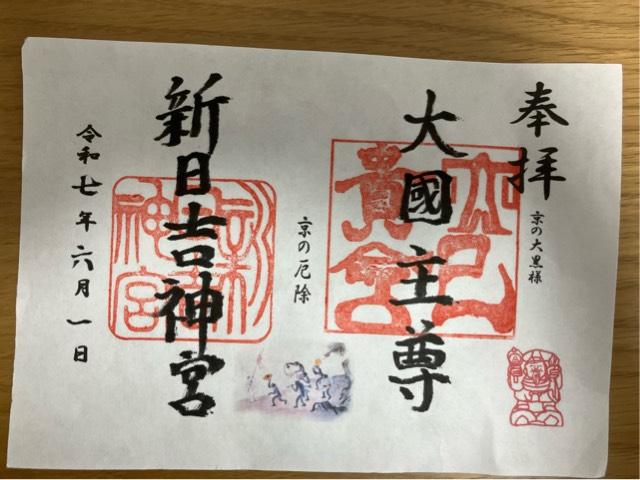 奉拝
京の大黒様
大國主尊
京の厄除
新日吉神宮
令和七年六月一日